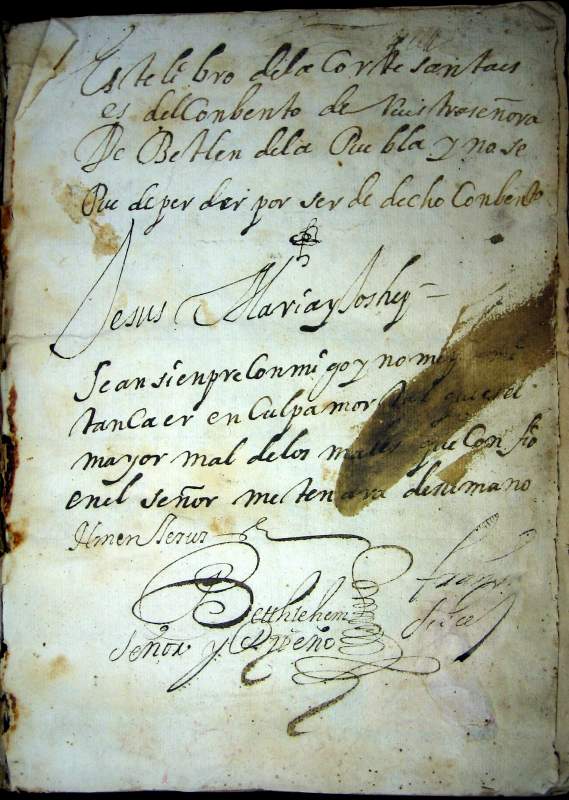 Este li bro dela Corte santaes
es del Conbento de Nuistraseñora
De Betlen dela Puebla y no se
Pue de per der por ser de decho Conbento
Jesus Maria y Joshep
Sean sienpre Conmigo y no me
tan Caer en Culpa mor tal que es el
mayor mal de los males que Con fio
en el señor me ten ara desu mano
Amen Jesus
Bethlehem
Señor y Dueño